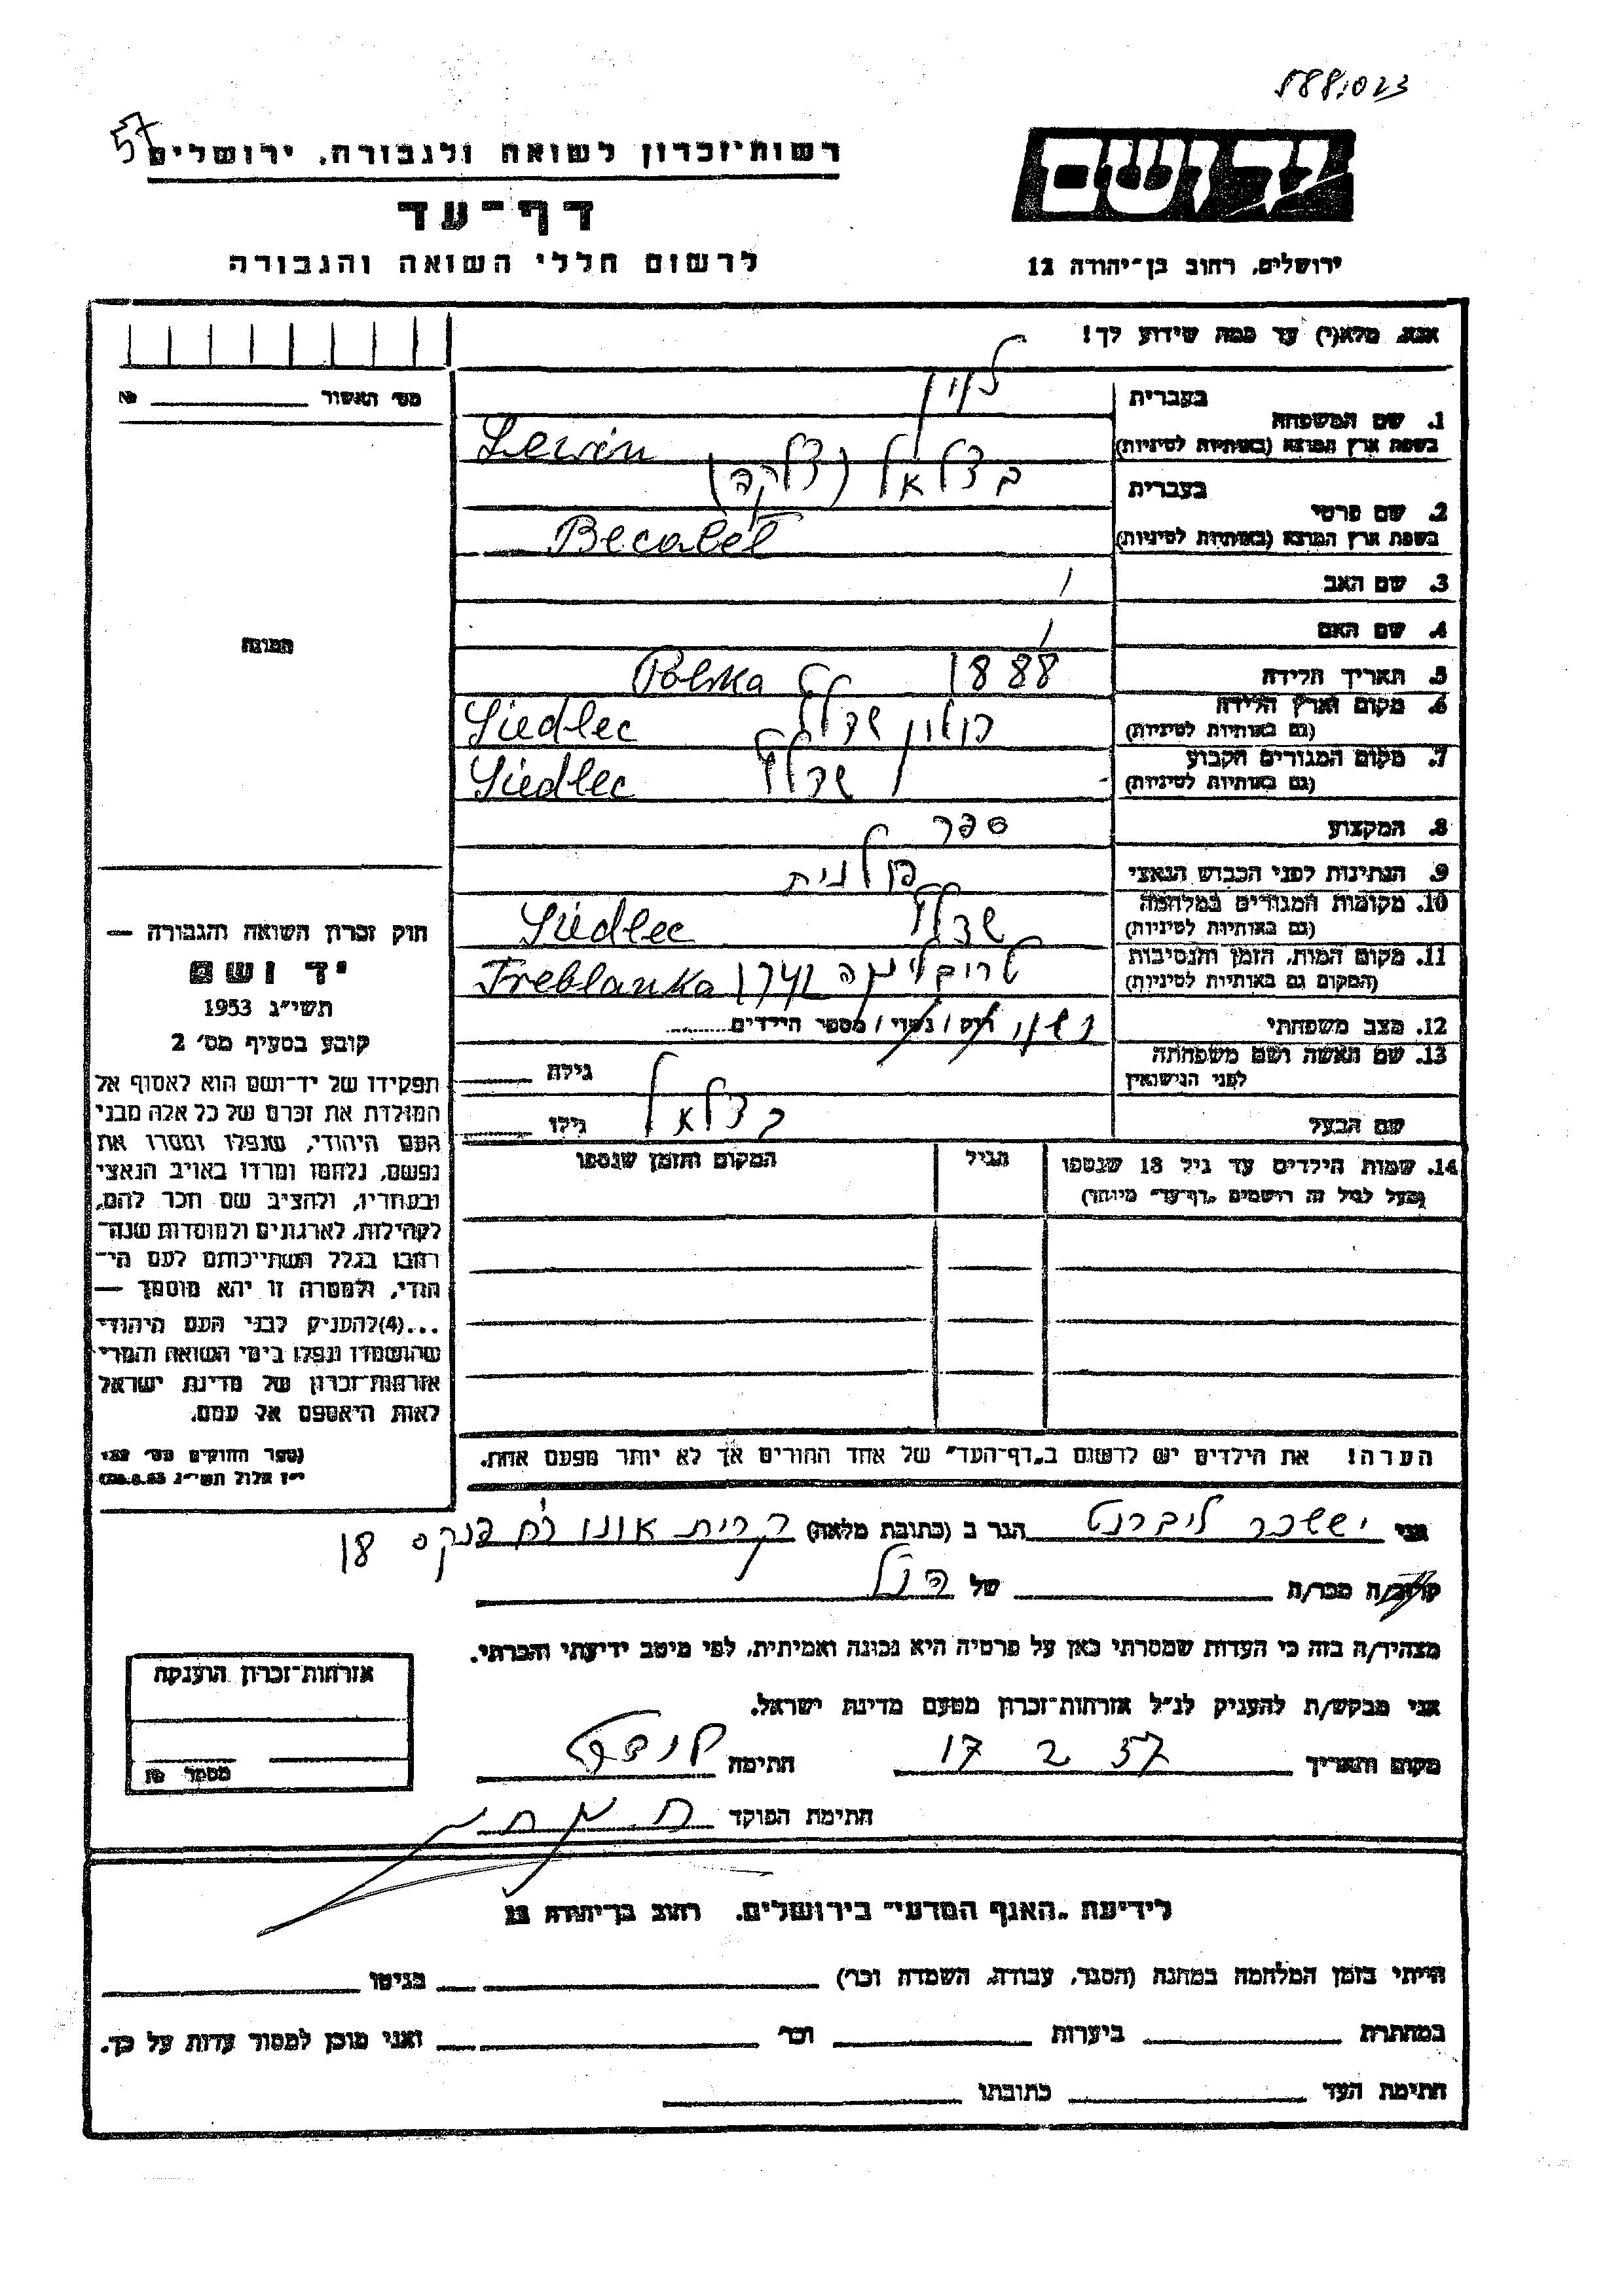 588023
57
רשות־זכרון לשואה ולגבורה, ירושלים
יד ושם
דף־עד
לרשום חללי השואה והגבורה
ירושלים, רחוב בן־יהודה 12
אנא, מלא(י) עד כמה שידוע לך!
מס׳ האשור № 
בעברית
לוין
1. שם המשפחה
בשפת ארץ המוצא (באותיות לטיניות)
Lewin
בעברית
בצלאל (צלקה)
2. שם פרטי
בשפת ארץ המוצא (באותיות לטיניות)
Becalel
3. שם האב /
4. שם האם /
5. תאריך הלידה 1888
6. מקום וארץ הלידה
(גם באותיות לטיניות)
פולין שדלץ Polska Siedlec
7. מקום המגורים הקבוע
(גם באותיות לטיניות)
שדלץ Siedlec
8. המקצוע ספר
9. הנתינות לפני הכבוש הנאצי פולנית
10. מקומות המגורים במלחמה
(גם באותיות לטיניות)
שדלץ Siedlec
11. מקום המות, הזמן והנסיבות
(המקום גם באותיות לטיניות)
טרובלינקה 1942 Treblanka
12. מצב משפחתי נשוי רוק / נשוי / מספר הילדים
13. שם האשה ושם משפחתה
לפני הנישואין
גילה
שם הבעל בצלאל גילו
14. שמות הילדים עד גיל 18 שנספו
(מעל לגיל זה רושמים „דף־עד״ מיוחד)
הגיל
המקום והזמן שנספו
הערה! את הילדים יש לרשום ב„דף־העד״ של אחד ההורים אך לא יותר מפעם אחת.
תמונה
חוק זכרון השואה והגבורה —
יד ושם
תשי״ג 1953
קובע בסעיף מס׳ 2
תפקידו של יד־ושם הוא לאסוף אל
המולדת את זכרם של כל אלה מבני
העם היהודי, שנפלו ומסרו את
נפשם, נלחמו ומרדו באויב הנאצי
ובעוזריו, ולהציב שם וזכר להם,
לקהילות, לארגונים ולמוסדות שנח־
רבו בגלל השתייכותם לעם הי־
הודי, ולמטרה זו יהא מוסמך —
...(4)להעניק לבני העם היהודי
שהושמדו ונפלו בימי השואה והמרי
אזרחות־זכרון של מדינת ישראל
לאות היאספם אל עמם.
(ספר החוקים מס׳ 132
י״ז אלול תשי״ג 28.8.53)
אני יששכר ליברנט הגר ב (כתובת מלאה) קרית אונו רח פנקס 18
קרוב/ה מכר/ה של הנ״ל
מצהיר/ה בזה כי העדות שמסרתי כאן על פרטיה היא נכונה ואמיתית, לפי מיטב ידיעתי והכרתי.
אני מבקש/ת להעניק לנ״ל אזרחות־זכרון מטעם מדינת ישראל.
מקום ותאריך 17 2 57 חתימה
חתימת הפוקד
אזרחות־זכרון הוענקה
מספר №
לידיעת „האגף המדעי״ בירושלים, רחוב בן־יהודה 12
הייתי בזמן המלחמה במחנה (הסגר, עבודה, השמדה וכר׳) בגיטו
במחתרת ביערות וכר׳ ואני מוכן למסור עדות על כך.
חתימת העד כתובתו